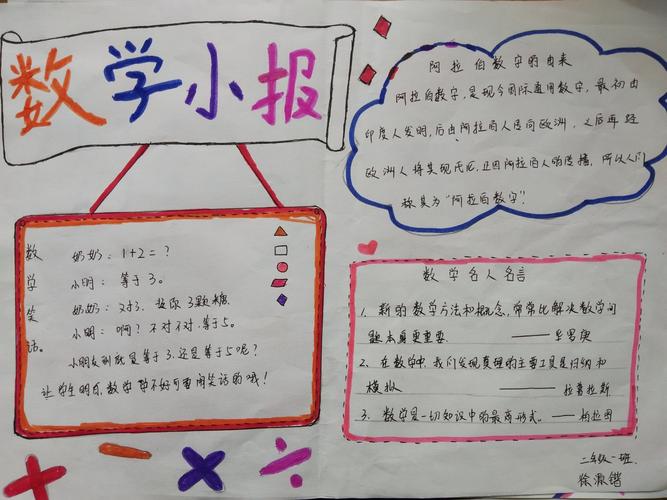 数学小报
数学笑话
奶奶：1+2=？
小明：等于3。
奶奶：对3，找你3颗糖
小明：啊？不对不对，等于5。
小明友到底是等于3，还是等于5呢？
让学生明白，数学学不好可要闹笑话的哦！
阿拉伯数字的由来
阿拉伯数字，是现今国际通用数字，最初由
印度人发明，后由阿拉伯人传向欧洲，之后再经
欧洲人将其现代化，正因阿拉伯人的传播，所以人们
称其为“阿拉伯数字”！
数学名人名言
1、新的数学方法和概念，常常比解决数学问
题本身更重要。——华罗庚
2、在数学中，我们发现真理的主要工具是归纳和
模拟 ——拉普拉斯
3、数学是一切知识中的最高形式。——柏拉图
二年级一班